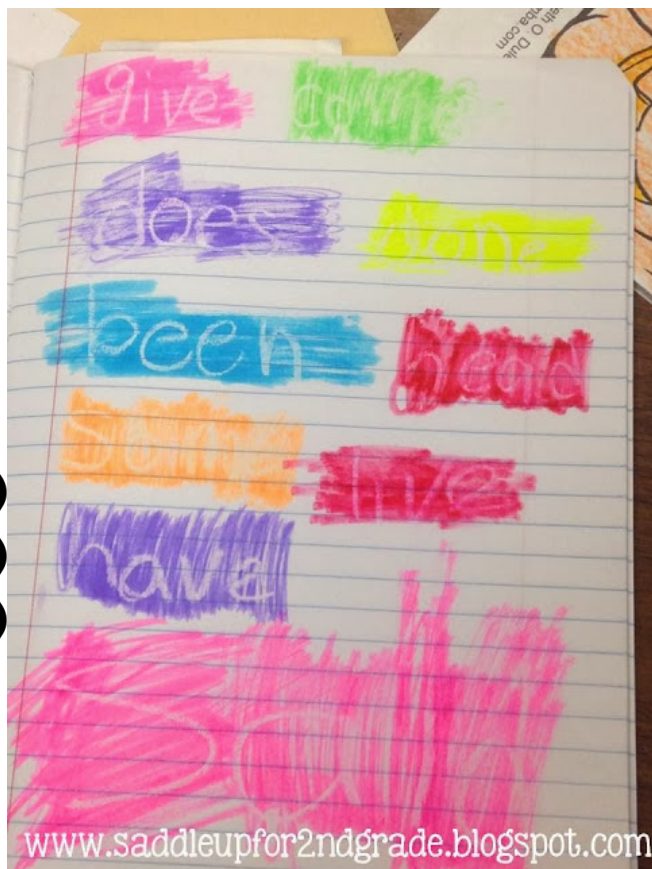 give come
does done
been
some
live
have
www.saddleupfor2ndgrade.blogspot.com